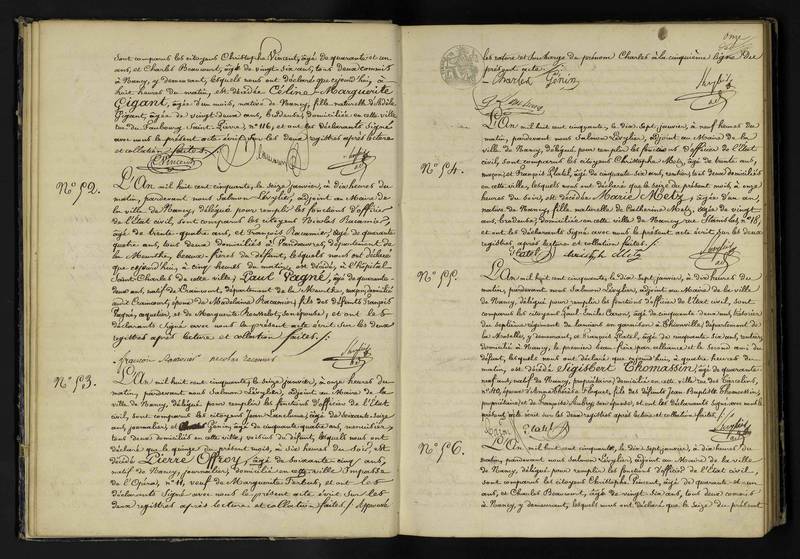 sont comparus les citoyens Christophe Vincent, âgé de quarante et un
ans, et Charles Beaucourt, âgé de vingt six ans, tous deux commis
à Nancy, y demeurant, lesquels nous ont déclaré que cejourd'hui, à
huit heures du matin, est décédée Céline-Marguerite
Gigant, âgée d'un mois, native de Nancy, fille naturelle d'Adèle
Gigant, âgée de vingt deux ans, brodeuse, domiciliée en cette ville
rue du Faubourg Saint-Pierre, n° 116, et ont les déclarants signé
avec nous le présent acte écrit sur les deux registres après lecture
et collation faites /.
C. Vincent
N° 52.
L'An mil huit cent cinquante, le seize janvier, à dix heures du
matin, pardevant nous Salmon Lévylier, adjoint au Maire de
la ville de Nancy, délégué pour remplir les fonctions d'officier
de l'Etat civil, sont comparus les citoyens Nicolas
âgé de trente-quatre ans, et François, âgé de quarante
quatre ans, tous deux domiciliés à, département de
la Meurthe, beaux-frères du défunt, lesquels nous ont déclaré
que cejourd'hui, à cinq heures du matin, est décédé, à l'hôpital
Saint-Charles de cette ville, Louis Pagné, âgé de quarante-
deux ans, natif de Craincourt, département de la Meurthe, domicilié
audit Craincourt, époux de Madeleine, fils des défunts François
Pagné, et de Marguerite, son épouse, et ont les
déclarants signé avec nous le présent acte écrit sur les deux
registres après lecture et collation faites /.
françois nicolas
N° 53.
L'An mil huit cent cinquante, le seize janvier, à onze heures du
matin, pardevant nous Salmon Lévylier, adjoint au Maire de la
ville de Nancy, délégué pour remplir les fonctions d'officier de l'Etat
civil, sont comparus les citoyens Jean, âgé de soixante-seize
ans, journalier, et Génin, âgé de cinquante-quatre ans, menuisier,
tous deux domiciliés en cette ville, voisins du défunt, lesquels nous ont
déclaré que le quinze du présent mois, à six heures du soir, est
décédé Pierre Offroy, âgé de soixante cinq ans,
natif de Nancy, journalier, domicilié en cette ville Impasse
de l'Opéra, n° 11, veuf de Marguerite, et ont les
déclarants signé avec nous le présent acte écrit sur les
deux registres après lecture et collation faites /. Approuvé
onze
les rature et surcharge du prénom Charles à la cinquième ligne du
présent acte.
Charles Génin
N° 54.
L'An mil huit cent cinquante, le dix sept janvier, à neuf heures du
matin, pardevant nous Salmon Lévylier, adjoint au Maire de la
ville de Nancy, délégué pour remplir les fonctions d'officier de l'Etat
civil, sont comparus les citoyens Christophe Metz, âgé de trente ans,
maçon, et François Platel, âgé de cinquante six ans, rentier, tous deux domiciliés
en cette ville, lesquels nous ont déclaré que le seize du présent mois, à onze
heures du soir, est décédée Marie Metz, âgée d'un an,
native de Nancy, fille naturelle de Catherine Metz, âgée de vingt
ans, brodeuse, domiciliée en cette ville de Nancy, rue Stanislas, n° 18,
et ont les déclarants signé avec nous le présent acte écrit sur les deux
registres, après lecture et collation faites /.
Platel
N° 55.
L'An mil huit cent cinquante, le dix-sept janvier, à dix heures du
matin, pardevant nous Salmon Lévylier, adjoint au Maire de la ville
de Nancy, délégué pour remplir les fonctions d'officier de l'Etat civil, sont
comparus les citoyens Paul Emile Caron, âgé de cinquante deux ans,
du septième régiment de lanciers en garnison à Thionville, département de
la Moselle, y demeurant, et François Platel, âgé de cinquante six ans, rentier,
domicilié à Nancy, le premier beau frère par alliance et le second ami du
défunt, lesquels nous ont déclaré que cejourd'hui, à quatre heures du
matin, est décédé Sigisbert Thomassin, âgé de quarante-
neuf ans, natif de Nancy, propriétaire, domicilié en cette ville rue des
n° 40, époux d'Anne, fils des défunts Jean Baptiste Thomassin,
propriétaire, et de Françoise, son épouse, et ont les déclarants signé avec nous le
présent acte écrit sur les deux registres après lecture et collation faites /.
Platel
N° 56.
L'An mil huit cent cinquante, le dix-sept janvier, à dix heures du
matin, pardevant nous Salmon Lévylier, adjoint au Maire de la ville
de Nancy, délégué pour remplir les fonctions d'officier de l'Etat civil,
sont comparus les citoyens Christophe Vincent, âgé de quarante et un
ans, et Charles Beaucourt, âgé de vingt six ans, tous deux commis
à Nancy, y demeurant, lesquels nous ont déclaré que le seize du présent